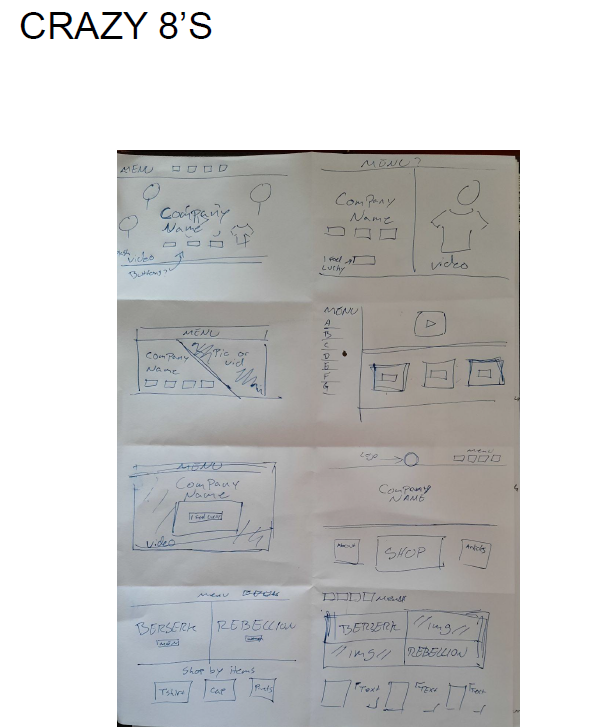 CRAZY 8'S
MENU
Company
Name
video
Buttons?
MENU?
Company
Name
I feel
Lucky
video
MENU
Company
Name
Pic or
vid
MENU
A
B
C
D
E
F
G
MENU
Company
Name
I Feel Lucky
Video
menu
Company
NAME
About
SHOP
Artists
menu
BERSERK
REBELLION
Shop by items
Tshirt
Cap
Pants
Menu
BERSERK
img
img
REBELLION
Text
Text
Text